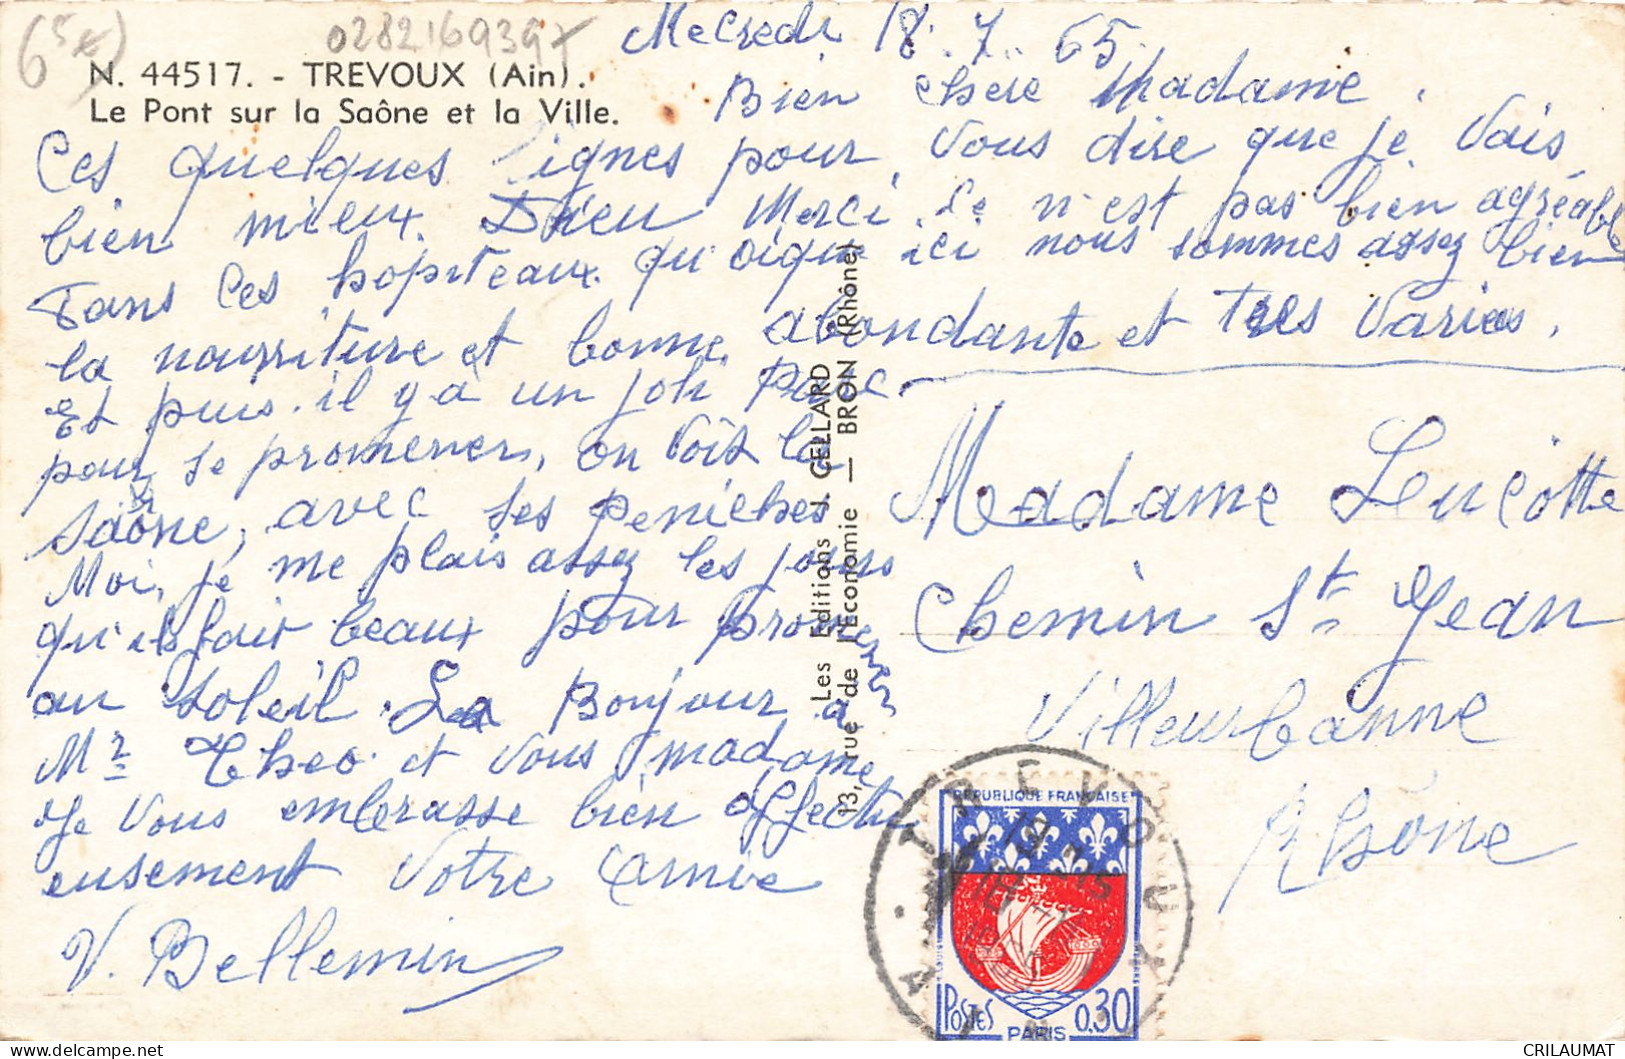 65€)
0282169397
N. 44517. - TREVOUX (Ain).
Le Pont sur la Saône et la Ville.
Mecredi 18. 7. 65
Bien chere Madame.
Ces quelques lignes pour vous dire que je vais
bien mieux. Dieu Merci. Se n'est pas bien agréable
Dans Ces hopiteaux. quoique ici nous sommes assez bien
la nourriture et bonne abondante et Tres Variees.
Et puis il y a un joli Parc
pour se promener, on voit la
Saône, avec ses peniches
Moi, je me plais assez les jours
qu'ils fait beaux pour promener
au soleil. La Bonjour a
Mr Theo. et vous madame
Je vous embrasse bien affectu
eusement Votre Amie
V. Bellemin
Les Editions J. CELLARD
13, rue de l'Economie — BRON (Rhône)
Madame Lucotte
Chemin St Jean
Villeurbanne
Rhône
TREVOUX
AIN
REPUBLIQUE FRANÇAISE
POSTES
0,30
PARIS
CRILAUMAT